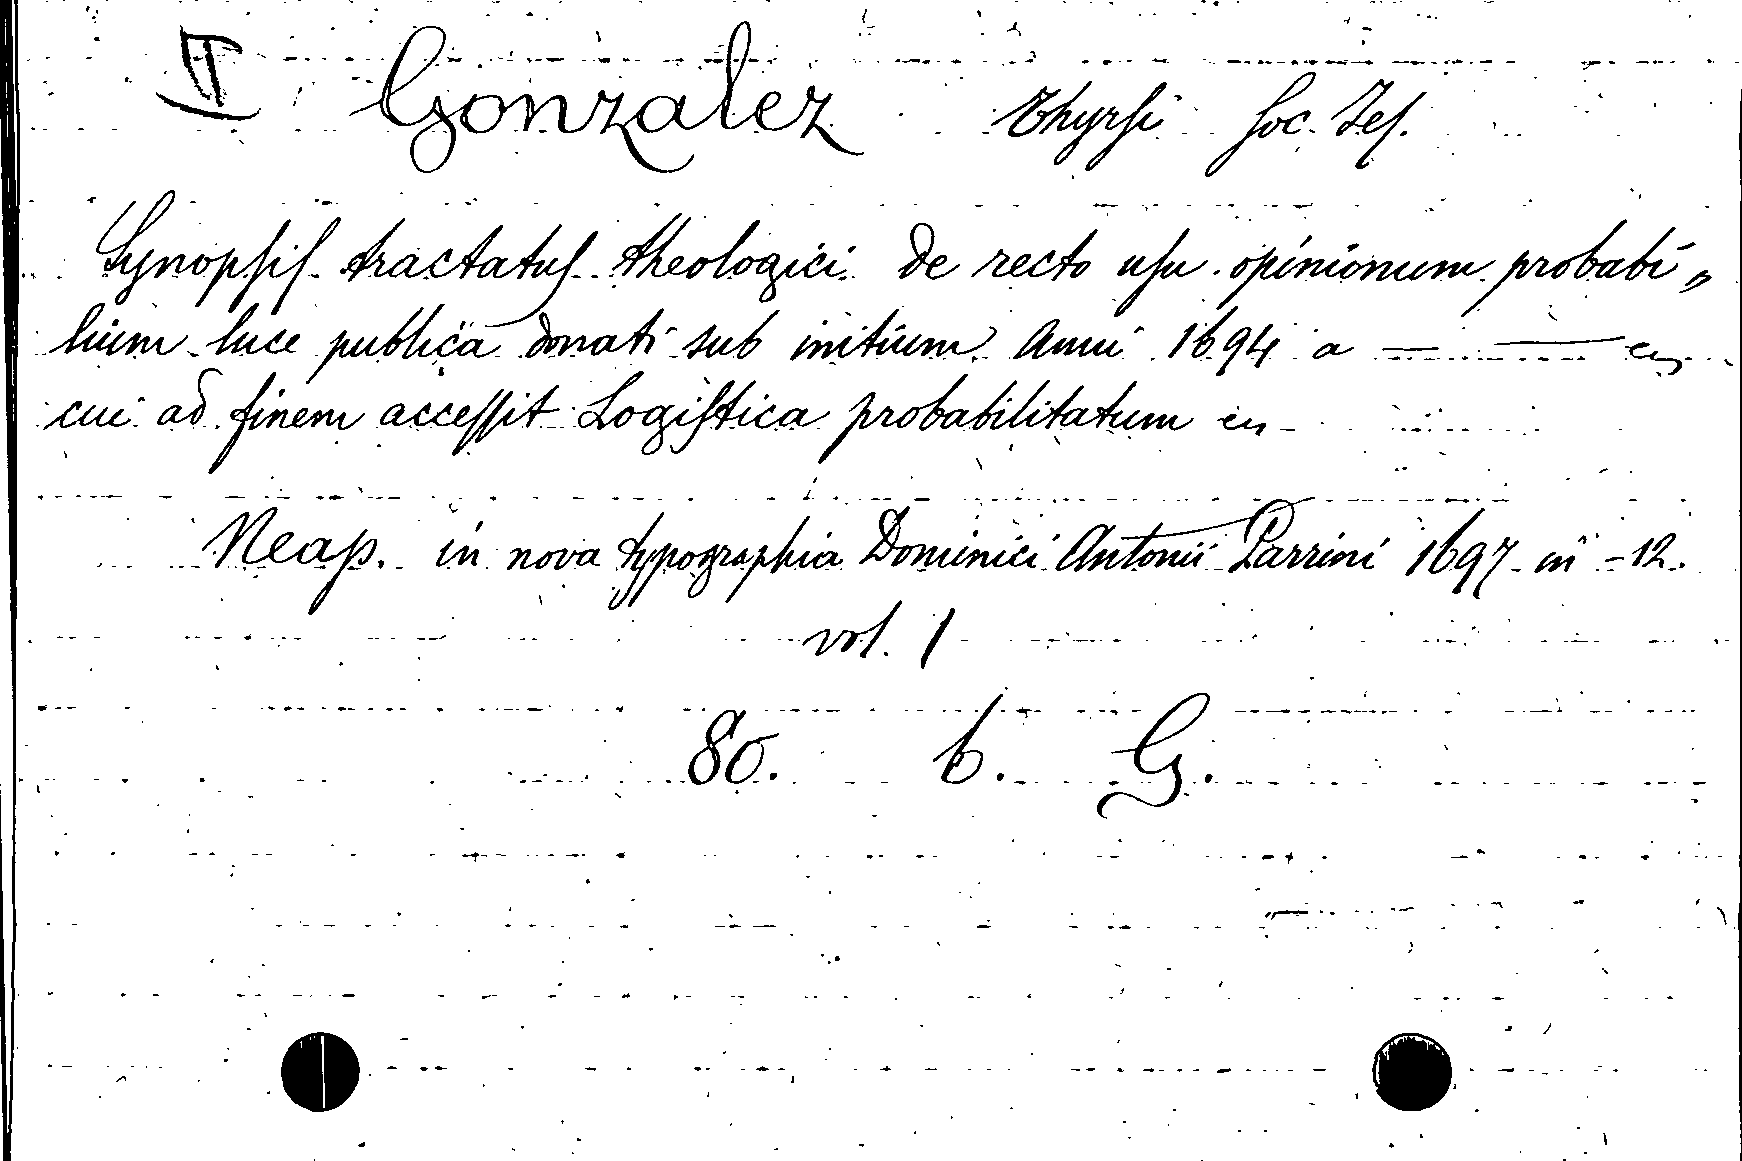 II Gonzalez Thyrsi Soc. Jes.
Synopsis tractatus theologici de recto usu opinionum probabi„
lium luce publica donati sub initium Anni 1694 a — —
cui ad finem accessit Logistica probabilitatum
Neap. in nova typographia Dominici Antonii Parrini 1697 in - 12.
vol. 1
80. b. G.